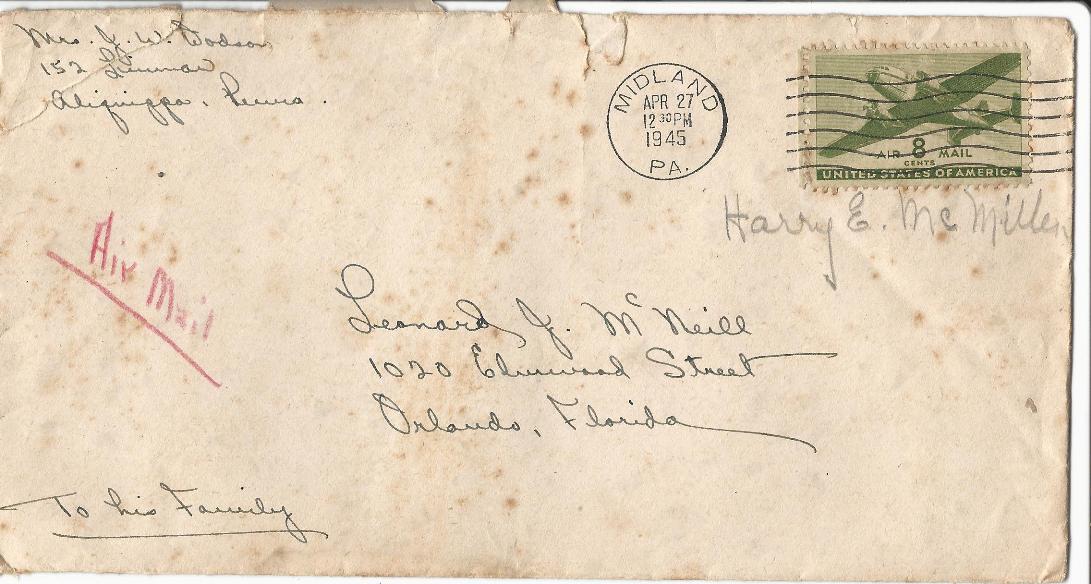 Mrs. J. W. Dodson
152
Aliquippa, Penna.
MIDLAND
APR 27
12 30 PM
1945
PA.
AIR 8 MAIL
CENTS
UNITED STATES OF AMERICA
Harry E. McMillen
Air Mail
Leonard J. McNeill
1020 Elmwood Street
Orlando, Florida
To his Family